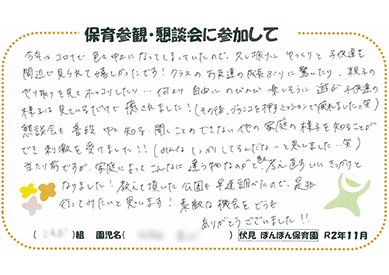 保育参観・懇談会に参加して
今年はコロナで色々中止になってしまっていたので、久し振りに ゆっくりと子供達を
間近で見られて嬉しかったです！クラスのお友達の成長ぶりに驚いたり、親子の
やり取りを見てホッコリしたり…何より自由にのびのび楽しそうに遊ぶ子供達の
様子は見ているだけで癒されました！(その後、ブランコを押すで疲れました笑)
懇談会も普段 中々知る、聞くことのできない他の家庭の様子を知ることが
でき刺激を受けました!!(みんなしっかりしてるんだな…と思いました…笑)
当たり前ですが、家庭によってこんなに違う物なのかと考え直すいいきっかけと
なりました！教えて頂いた公園も早速調べたので、是非
行ってみたいと思います！素敵な機会をどうも
ありがとうございました!!
( )組 園児名( ) 伏見 ぽんぽん保育園 R2年11月